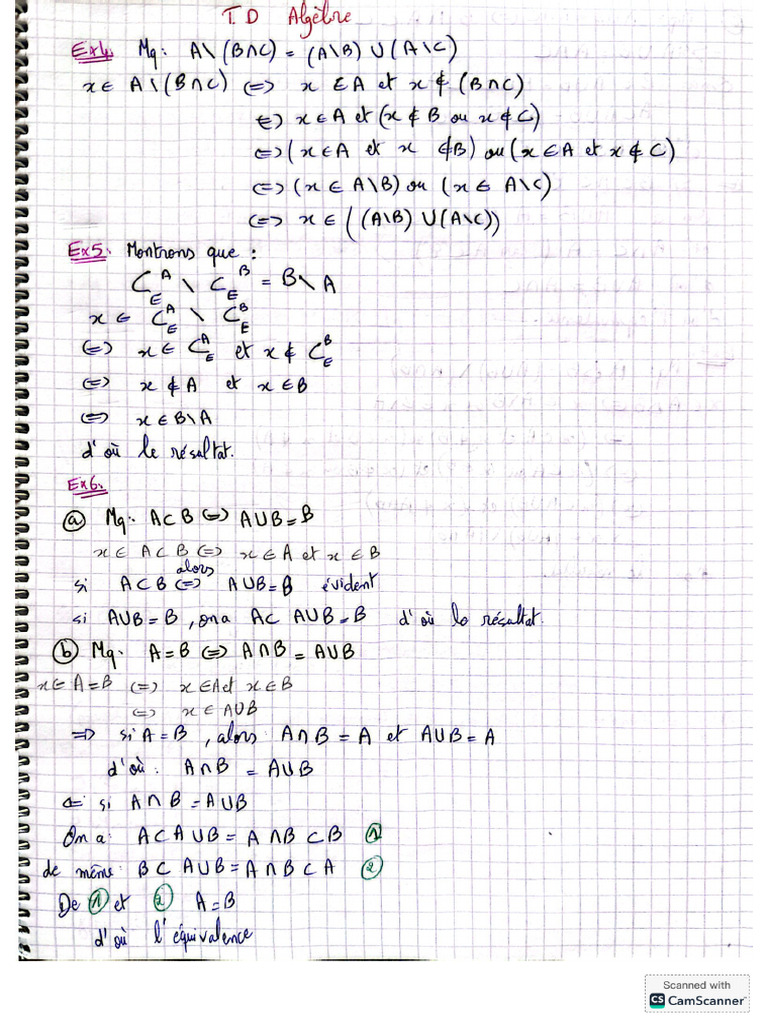 T.D Algèbre
Ex4. Mq: A\(B∩C) = (A\B) ∪ (A\C)
x ∈ A\(B∩C) <=> x ∈ A et x ∉ (B∩C)
<=> x ∈ A et (x ∉ B ou x ∉ C)
<=> (x ∈ A et x ∉ B) ou (x ∈ A et x ∉ C)
<=> (x ∈ A\B) ou (x ∈ A\C)
<=> x ∈ ((A\B) ∪ (A\C))
Ex5. Montrons que :
C_E^A \ C_E^B = B\A
x ∈ C_E^A \ C_E^B
<=> x ∈ C_E^A et x ∉ C_E^B
<=> x ∉ A et x ∈ B
<=> x ∈ B\A
d'où le résultat.
Ex6.
(a) Mq: A⊂B <=> A∪B = B
x ∈ A⊂B <=> x ∈ A et x ∈ B
si A⊂B <=> alors A∪B = B évident
si A∪B = B, on a A⊂ A∪B = B d'où le résultat.
(b) Mq: A=B <=> A∩B = A∪B
x ∈ A=B <=> x ∈ A et x ∈ B
<=> x ∈ A∪B
=> si A=B, alors A∩B = A et A∪B = A
d'où: A∩B = A∪B
<= si A∩B = A∪B
On a: A⊂A∪B = A∩B⊂B ①
de même: B⊂A∪B = A∩B⊂A ②
De ① et ② A=B
d'où l'équivalence
Scanned with
CS CamScanner